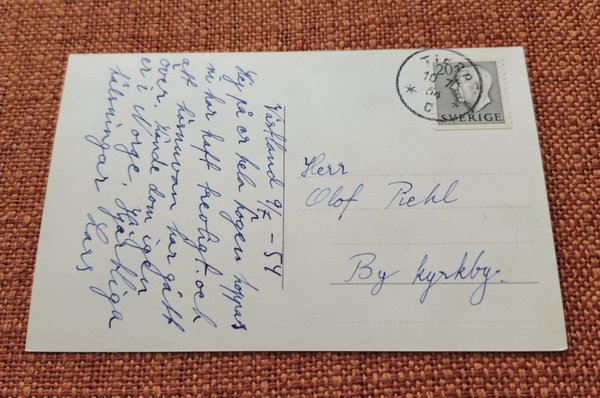 Västland 9/7 - 54
Hej på er hela högen hoppas
ni har haft trevligt. och
att hösnuvan har gått
över. kände dom igen
er i Norge, Hjärtliga
hälsningar Lars
TIERP
10 7
54
20
SVERIGE
Herr
Olof Piehl
By kyrkby.